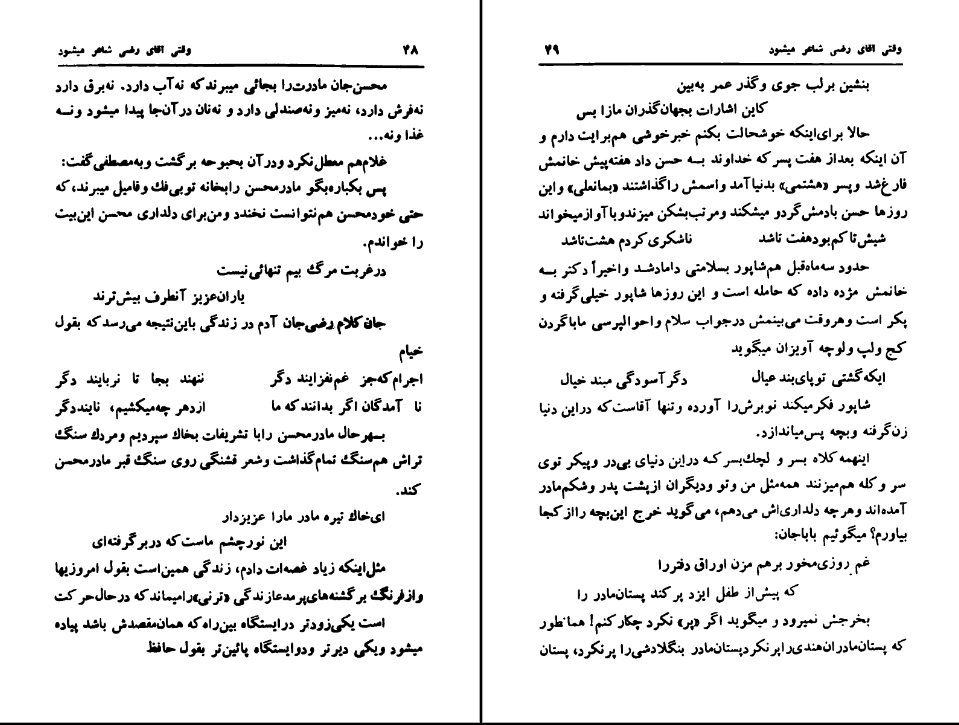 ۴۸ وقتی آقای رضی شاعر میشود
محسن‌جان مادرت‌را بجائی میبرند که نه‌آب دارد. نه‌برق دارد
نه‌فرش دارد، نه‌میز و نه‌صندلی دارد و نه‌نان در آن‌جا پیدا میشود و نه
غذا و نه...
غلام‌هم معطل نکرد و در آن بحبوحه برگشت و به مصطفی گفت:
پس یکباره بگو مادر محسن را بخانه توبی‌فك و فامیل میبرند، که
حتی خود محسن هم نتوانست نخندد و من برای دلداری محسن این بیت
را خواندم.
در غربت مرگ بیم تنهائی نیست
یاران عزیز آنطرف بیش‌ترند
جان کلام رضی‌جان آدم در زندگی باین نتیجه می‌رسد که بقول
خیام
اجرام که جز غم نفزایند دگر ننهند بجا تا نربایند دگر
نا آمدگان اگر بدانند که ما از دهر چه میکشیم، نایند دگر
بهر حال مادر محسن را با تشریفات بخاك سپردیم و مردك سنگ
تراش هم سنگ تمام گذاشت و شعر قشنگی روی سنگ قبر مادر محسن
کند.
ای خاك تیره مادر ما را عزیز دار
این نور چشم ماست که در بر گرفته‌ای
مثل اینکه زیاد غصه‌ات دادم، زندگی همین است بقول امروزیها
و از فرنگ برگشته‌های پرمدعا زندگی «ترنی» را میماند که در حال حرکت
است یکی زودتر در ایستگاه بین راه که همان مقصدش باشد پیاده
میشود و یکی دیرتر و دو ایستگاه پائین‌تر بقول حافظ
۴۹ وقتی آقای رضی شاعر میشود
بنشین بر لب جوی و گذر عمر به‌بین
کاین اشارات بجهان گذران ما را بس
حالا برای اینکه خوشحالت بکنم خبر خوشی هم برایت دارم و
آن اینکه بعد از هفت پسر که خداوند به حسن داد هفته پیش خانمش
فارغ شد و پسر «هشتمی» بدنیا آمد و اسمش را گذاشتند «بمانعلی» و این
روزها حسن بادمش گردو میشکند و مرتب بشکن میزند و با آواز میخواند
شیش تا کم بود هفت تا شد ناشکری کردم هشت تا شد
حدود سه ماه قبل هم شاپور بسلامتی داماد شد و اخیراً دکتر به
خانمش مژده داده که حامله است و این روزها شاپور خیلی گرفته و
پکر است و هر وقت می‌بینمش در جواب سلام و احوالپرسی ما با گردن
کج و لپ و لوچه آویزان میگوید
ایکه گشتی تو پای بند عیال دگر آسودگی مبند خیال
شاپور فکر میکند نوبرش را آورده و تنها آقاست که در این دنیا
زن گرفته و بچه پس میاندازد.
اینهمه کلاه بسر و لچك بسر که در این دنیای بی‌در و پیکر توی
سر و کله هم میزنند همه مثل من و تو و دیگران از پشت پدر و شکم مادر
آمده‌اند و هر چه دلداری‌اش می‌دهم، می‌گوید خرج این بچه را از کجا
بیاورم؟ میگوئیم بابا جان:
غم روزی مخور برهم مزن اوراق دفتر را
که پیش از طفل ایزد پر کند پستان مادر را
بخرجش نمیرود و میگوید اگر «پر» نکرد چکار کنم! همانطور
که پستان مادران هندی را پر نکرد پستان مادر بنگلادشی را پر نکرد، پستان